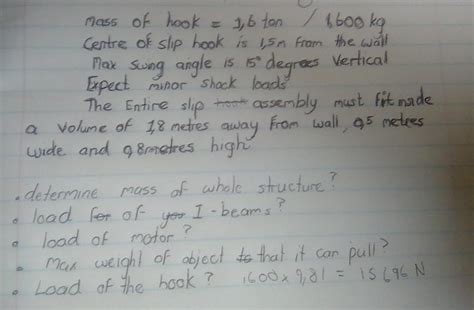 mass of hook = 1,6 ton / 1,600 kg
Centre of slip hook is 1,5m from the wall
Max swing angle is 15° degrees vertical
Expect minor shock loads
The Entire slip hook assembly must fit made
a volume of 1,8 metres away from wall, 0,5 metres
wide and 0,8 metres high
• determine mass of whole structure?
• load for of you I-beams?
• load of motor?
• Max weight of object to that it can pull?
• Load of the hook? 1600 x 9,81 = 15 696 N